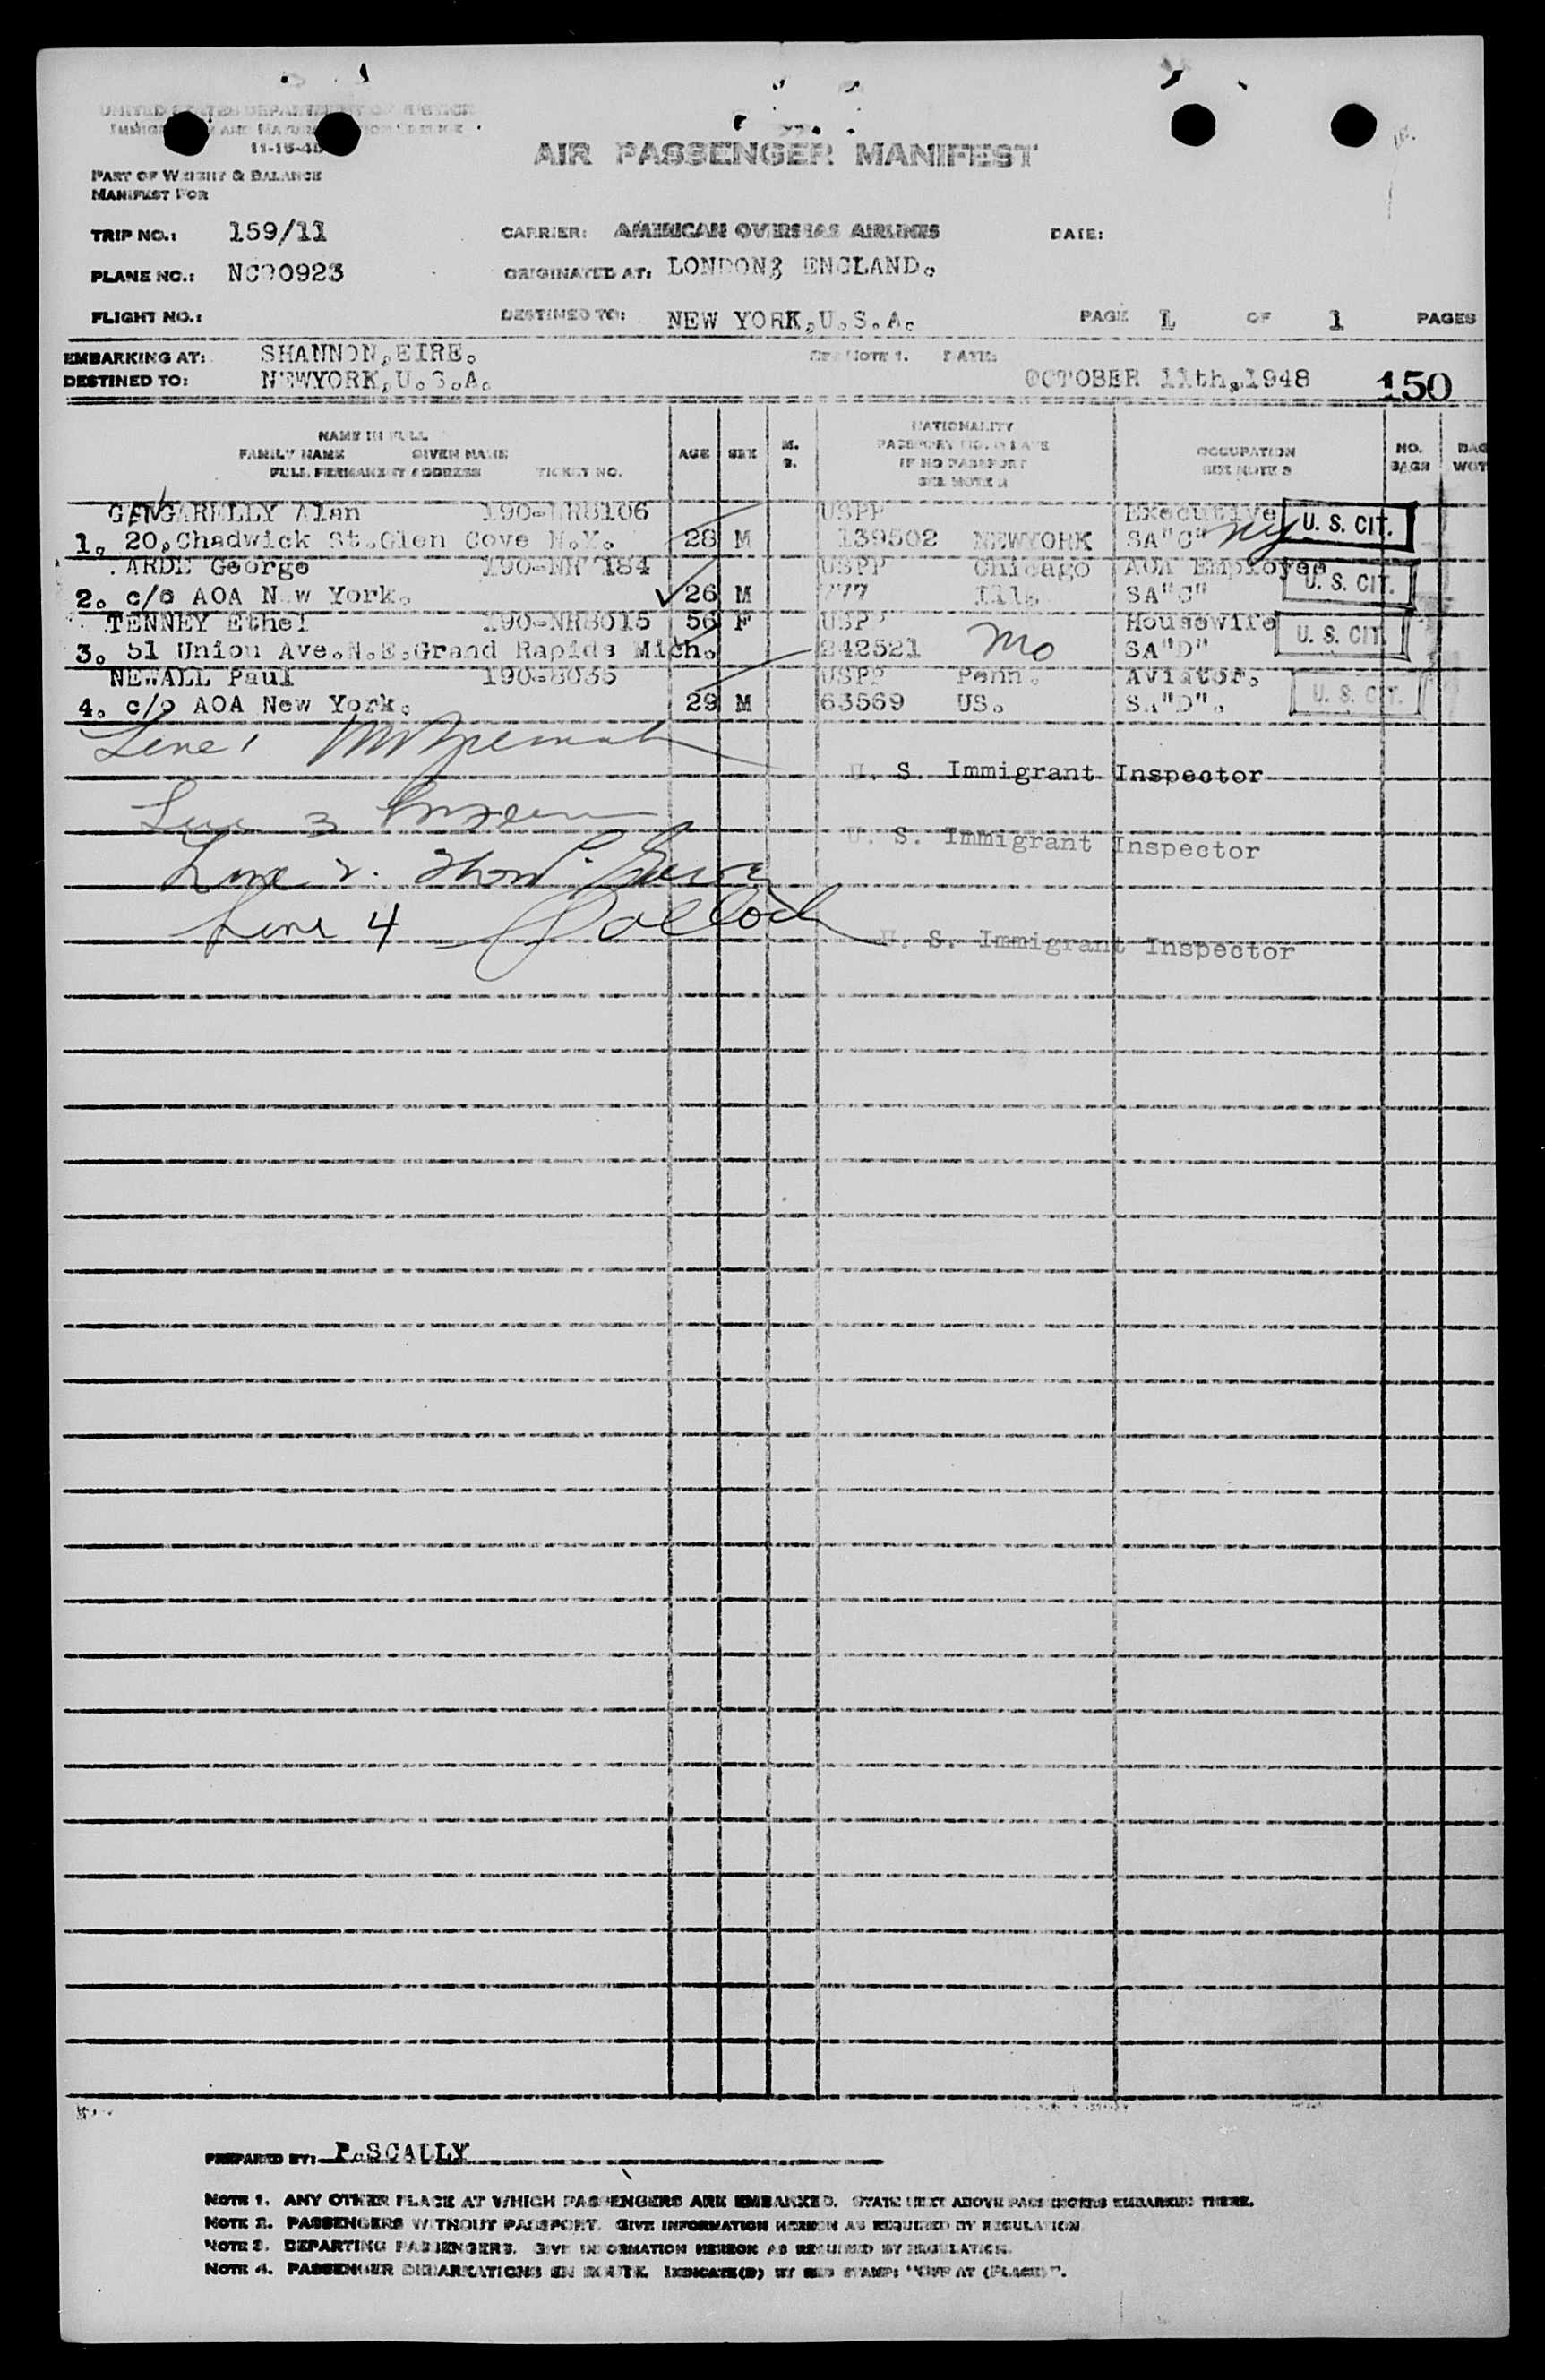 UNITED STATES DEPARTMENT OF JUSTICE
IMMIGRATION AND NATURALIZATION SERVICE
11-15-45
AIR PASSENGER MANIFEST
PART OF WEIGHT & BALANCE
MANIFEST FOR
TRIP NO.: 159/11 CARRIER: AMERICAN OVERSEAS AIRLINES DATE:
PLANE NO.: NC90923 ORIGINATED AT: LONDON, ENGLAND.
FLIGHT NO.: DESTINED TO: NEW YORK,U.S.A. PAGE 1 OF 1 PAGES
EMBARKING AT: SHANNON,EIRE. SEE NOTE 1. DATE:
DESTINED TO: NEWYORK,U.S.A. OCTOBER 11th,1948 150
NAME IN FULL
FAMILY NAME GIVEN NAME
FULL PERMANENT ADDRESS TICKET NO. AGE SEX M. S.
NATIONALITY
PASSPORT NO. & DATE
IF NO PASSPORT
SEE NOTE 2
OCCUPATION
SEE NOTE 3
NO. BAGS
BAG WGT
GANGARELLY Alan 190-NR8106 USPP Executive
1. 20,Chadwick St.Glen Cove N.Y. 28 M 139502 NEWYORK SA"C" NY U. S. CIT.
ARDE George USPP Chicago AOA Employee
2. c/o AOA New York. 26 M 777 Ills SA"C" U. S. CIT.
TENNEY Ethel 190-NR8015 56 F USPP Housewife
3. 51 Union Ave.N.E.Grand Rapids Mich. 242521 Mo SA"D" U. S. CIT.
NEWALL Paul 190-8035 USPP Penn. Aviator.
4. c/o AOA New York. 29 M 63569 US. SA"D". U. S. CIT.
Line 1
U. S. Immigrant Inspector
Line 3
U. S. Immigrant Inspector
Line 2.
Line 4
U. S. Immigrant Inspector
PREPARED BY: P.SCALLY
NOTE 1. ANY OTHER PLACE AT WHICH PASSENGERS ARE EMBARKED. STATE NEXT ABOVE PASSENGERS EMBARKING THERE.
NOTE 2. PASSENGERS WITHOUT PASSPORT. GIVE INFORMATION HEREON AS REQUIRED BY REGULATION
NOTE 3. DEPARTING PASSENGERS. GIVE INFORMATION HEREON AS REQUIRED BY REGULATION.
NOTE 4. PASSENGER DEBARKATIONS EN ROUTE. INDICATE(D) BY RED STAMP: "OFF AT (PLACE)".